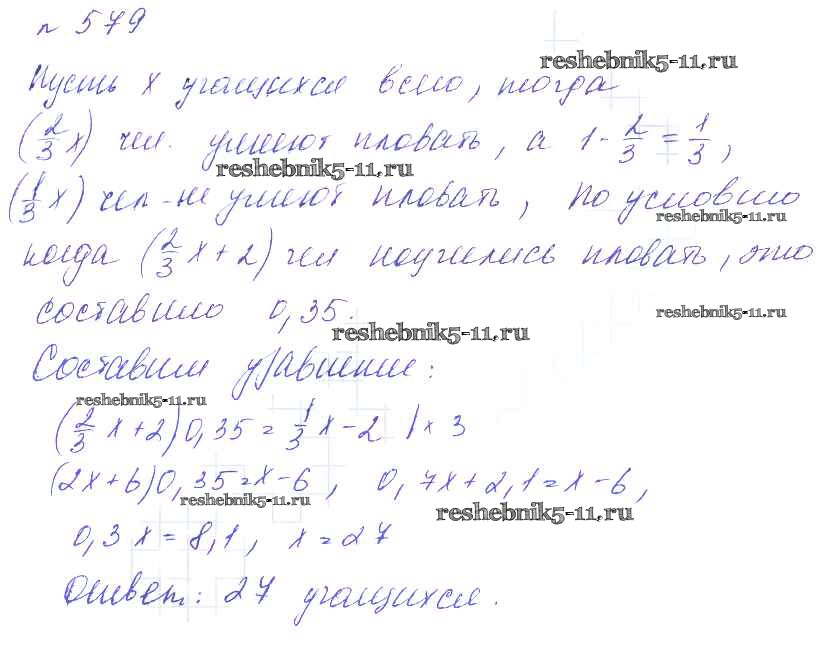 № 579
reshebnik5-11.ru
Пусть x учащихся всего, тогда
(2/3 x) чел. умеют пловать, а 1 - 2/3 = 1/3,
reshebnik5-11.ru
(1/3 x) чел - не умеют пловать, по условию
reshebnik5-11.ru
когда (2/3 x + 2) чел научились пловать, это
составило 0,35.
reshebnik5-11.ru
reshebnik5-11.ru
Составим уравнение:
reshebnik5-11.ru
(2/3 x + 2) 0,35 = 1/3 x - 2 | × 3
(2x + 6) 0,35 = x - 6, 0,7x + 2,1 = x - 6,
reshebnik5-11.ru
reshebnik5-11.ru
0,3 x = 8,1, x = 27
Ответ: 27 учащихся.